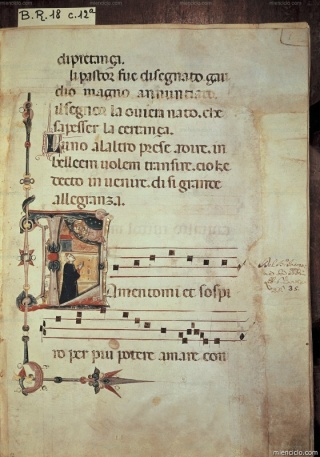 B.R. 18 c. 12ª
di pietança.
li pastor fue disegnato gau
dio magno annuntiato
il segnor la oviera nato. che
sapesser la certança.
Luno alaltro prese adire. in
belleem volem transire. cio ke
decto in venire. di si grande
allegranza.
Amentomi et sospi
ro per piu potere amare con
mienciclo.com